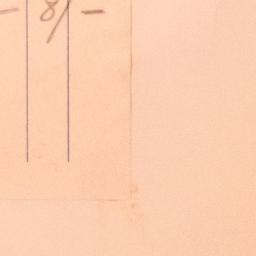 – 8/ –